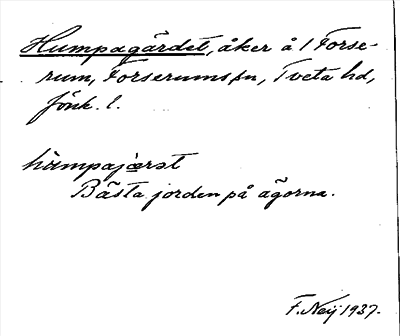 Humpagärdet, åker å 1 Forse-
rum, Forserums sn, Tveta hd,
Jönk. l.
hùmpajærst
Bästa jorden på ägorna.
F. Neij 1937.